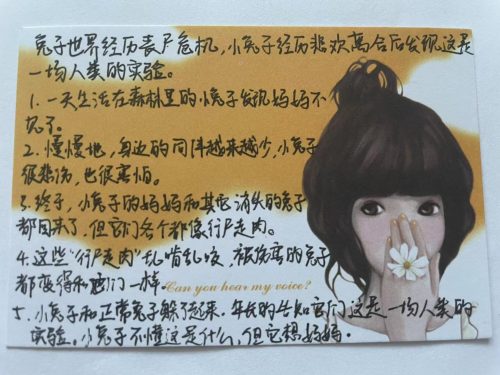 兔子世界经历丧尸危机，小兔子经历悲欢离合后发现这是
一场人类的实验。
1. 一天生活在森林里的小兔子发现妈妈不
见了。
2. 慢慢地，身边的同伴越来越少，小兔子
很悲伤，也很害怕。
3. 终于，小兔子的妈妈和其他消失的兔子
都回来了，但它们各个都像行尸走肉。
4. 这些“行尸走肉”乱啃乱咬，被伤害的兔子
都变得和它们一样。
Can you hear my voice?
5. 小兔子和正常兔子躲了起来。年长的告知它们这是一场人类的
实验。小兔子不懂这是什么，但它想妈妈。